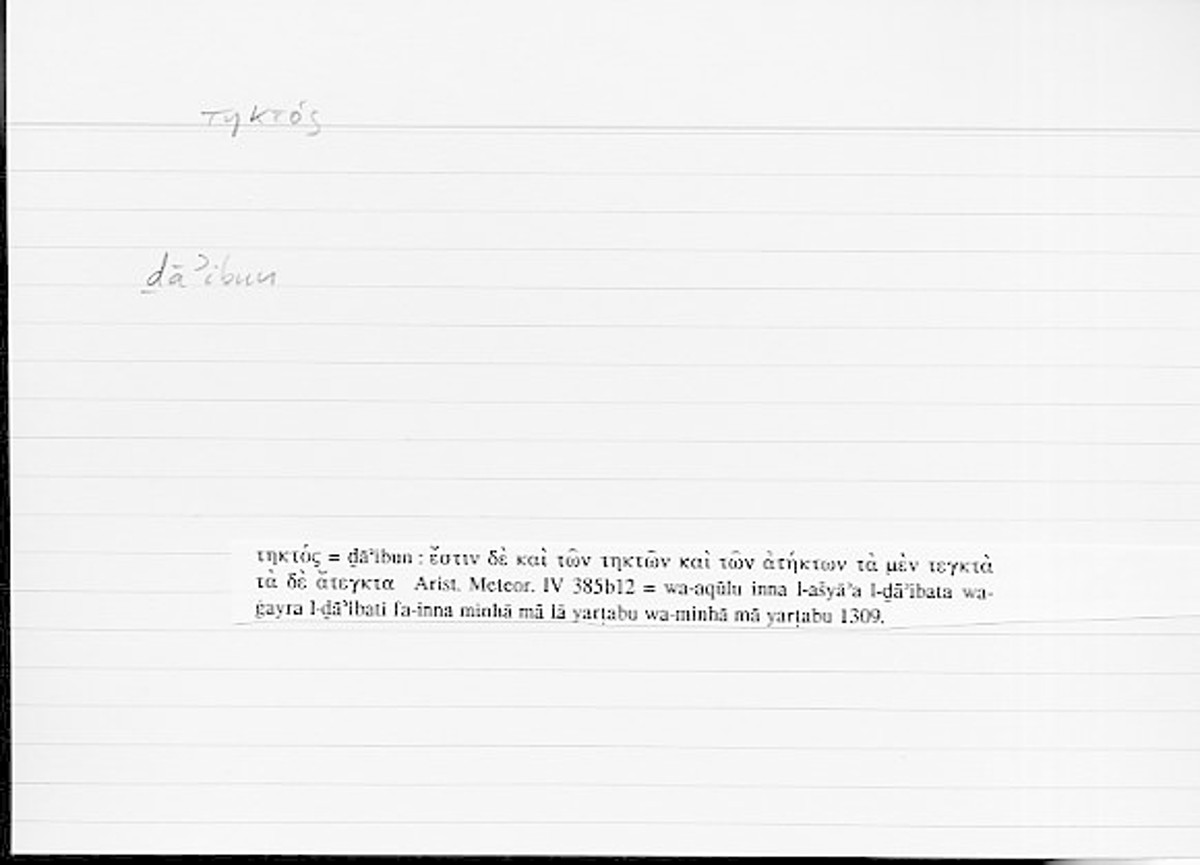 τηκτός
ḏāʾibun
τηκτός = ḏāʾibun : ἔστιν δὲ καὶ τῶν τηκτῶν καὶ τῶν ἀτήκτων τὰ μὲν τεγκτὰ
τὰ δὲ ἄτεγκτα Arist. Meteor. IV 385b12 = wa-aqūlu inna l-ašyāʾa l-ḏāʾibata wa-
ġayra l-ḏāʾibati fa-inna minhā mā lā yarṭabu wa-minhā mā yarṭabu 1309.